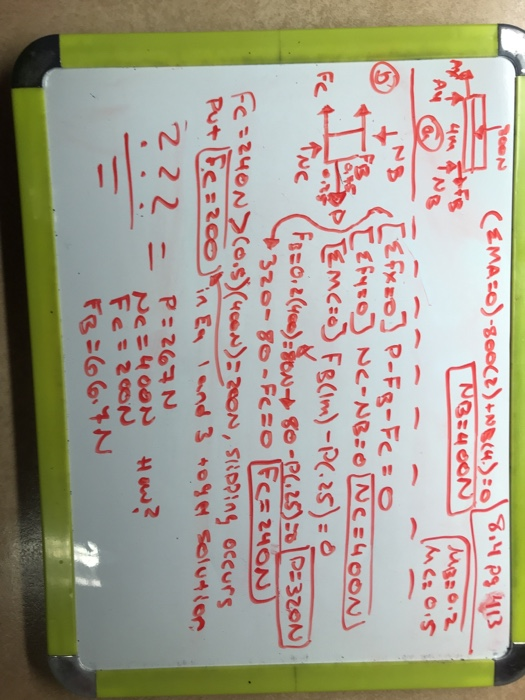 800N
Ax
Ay
4m
NB
FB
(a)
(ΣMA=0) -800(2)+NB(4)=0
NB=400N
8.4 pg 413
MB=0.2
MC=0.5
(b)
NB
FB
P
FC
NC
[ΣFx=0] P-FB-FC=0
[ΣFy=0] NC-NB=0 NC=400N
[ΣMC=0] FB(1m)-P(.25)=0
FB=0.2(400)=80N → 80-P(.25)=0 P=320N
320-80-FC=0 FC=240N
FC=240N>(0.5)(400N)=200N, slipping occurs
Put FC=200 in Eq 1 and 3 to get solution
???
=
P=267N
NC=400N How?
FC=200N
FB=66.7N